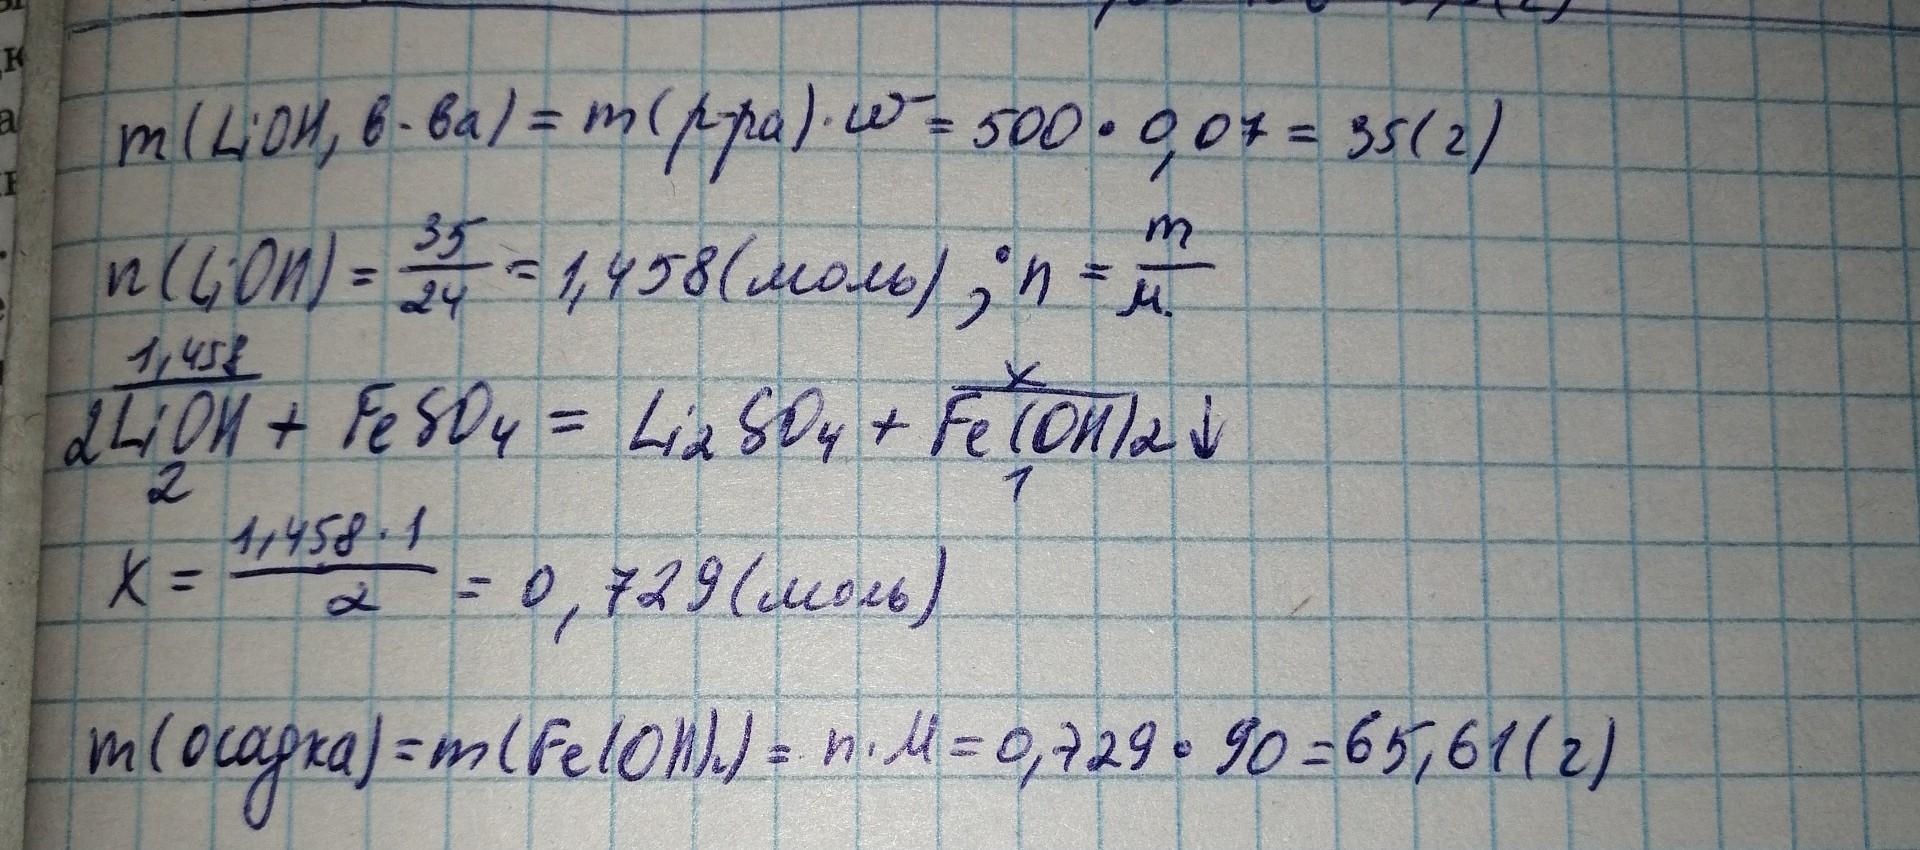 m(LiOH, в-ва) = m(р-ра)·w = 500 · 0,07 = 35(г)
n(LiOH) = 35/24 = 1,458(моль); n = m/M
1,458 x
2LiOH + FeSO4 = Li2SO4 + Fe(OH)2↓
2 1
x = 1,458·1/2 = 0,729(моль)
m(осадка) = m(Fe(OH)2) = n·M = 0,729 · 90 = 65,61(г)